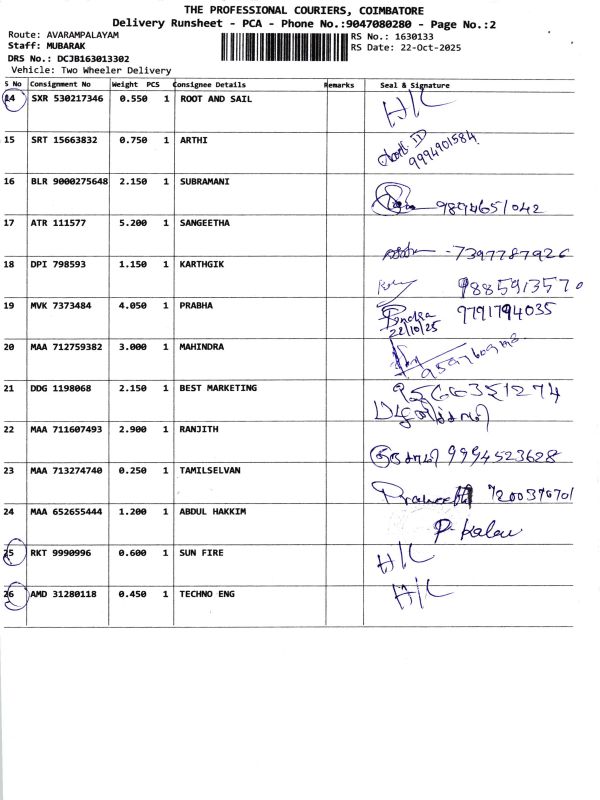 THE PROFESSIONAL COURIERS, COIMBATORE
Delivery Runsheet - PCA - Phone No.:9047080280 - Page No.:2
Route: AVARAMPALAYAM
RS No.: 1630133
Staff: MUBARAK
RS Date: 22-Oct-2025
DRS No.: DCJB163013302
Vehicle: Two Wheeler Delivery
S No Consignment No Weight PCS Consignee Details Remarks Seal & Signature
14 SXR 530217346 0.550 1 ROOT AND SAIL H/C
15 SRT 15663832 0.750 1 ARTHI
9994901584
16 BLR 9000275648 2.150 1 SUBRAMANI
9894651042
17 ATR 111577 5.200 1 SANGEETHA
7397787926
18 DPI 798593 1.150 1 KARTHGIK
9885913570
19 MVK 7373484 4.050 1 PRABHA 9791794035
22/10/25
20 MAA 712759382 3.000 1 MAHINDRA
21 DDG 1198068 2.150 1 BEST MARKETING
9566351274
22 MAA 711607493 2.900 1 RANJITH
9994523628
23 MAA 713274740 0.250 1 TAMILSELVAN
24 MAA 652655444 1.200 1 ABDUL HAKKIM
P. Kalai
25 RKT 9990996 0.600 1 SUN FIRE H/C
26 AMD 31280118 0.450 1 TECHNO ENG H/C